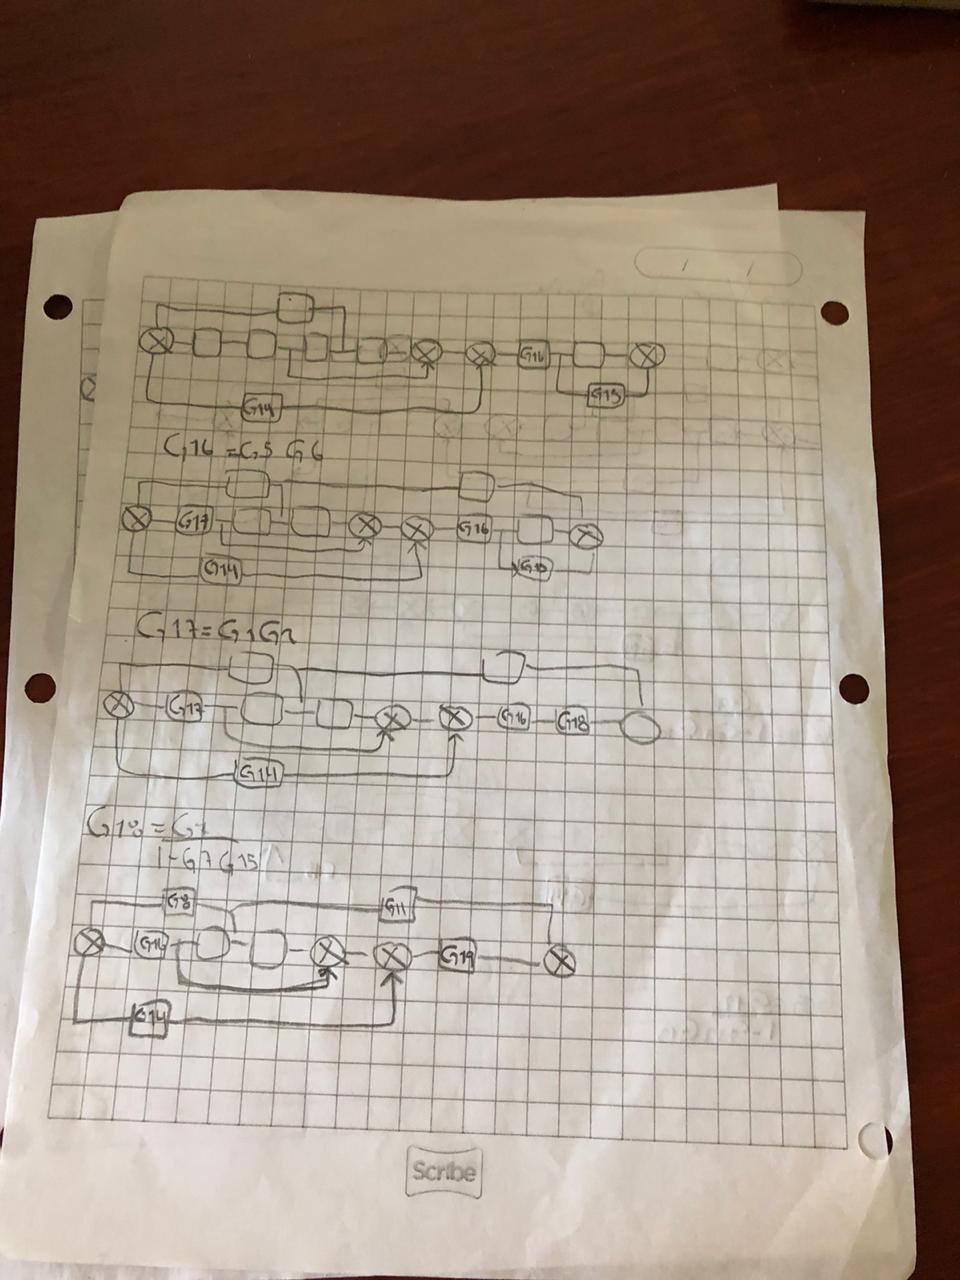 G16 G15
G14
G16 = G5 G6
G17 G16
G14
G17 = G1 G2
G17 G16 G18
G14
G18 = G7
1-G7G15
G8 G11
G19
G14
Scribe